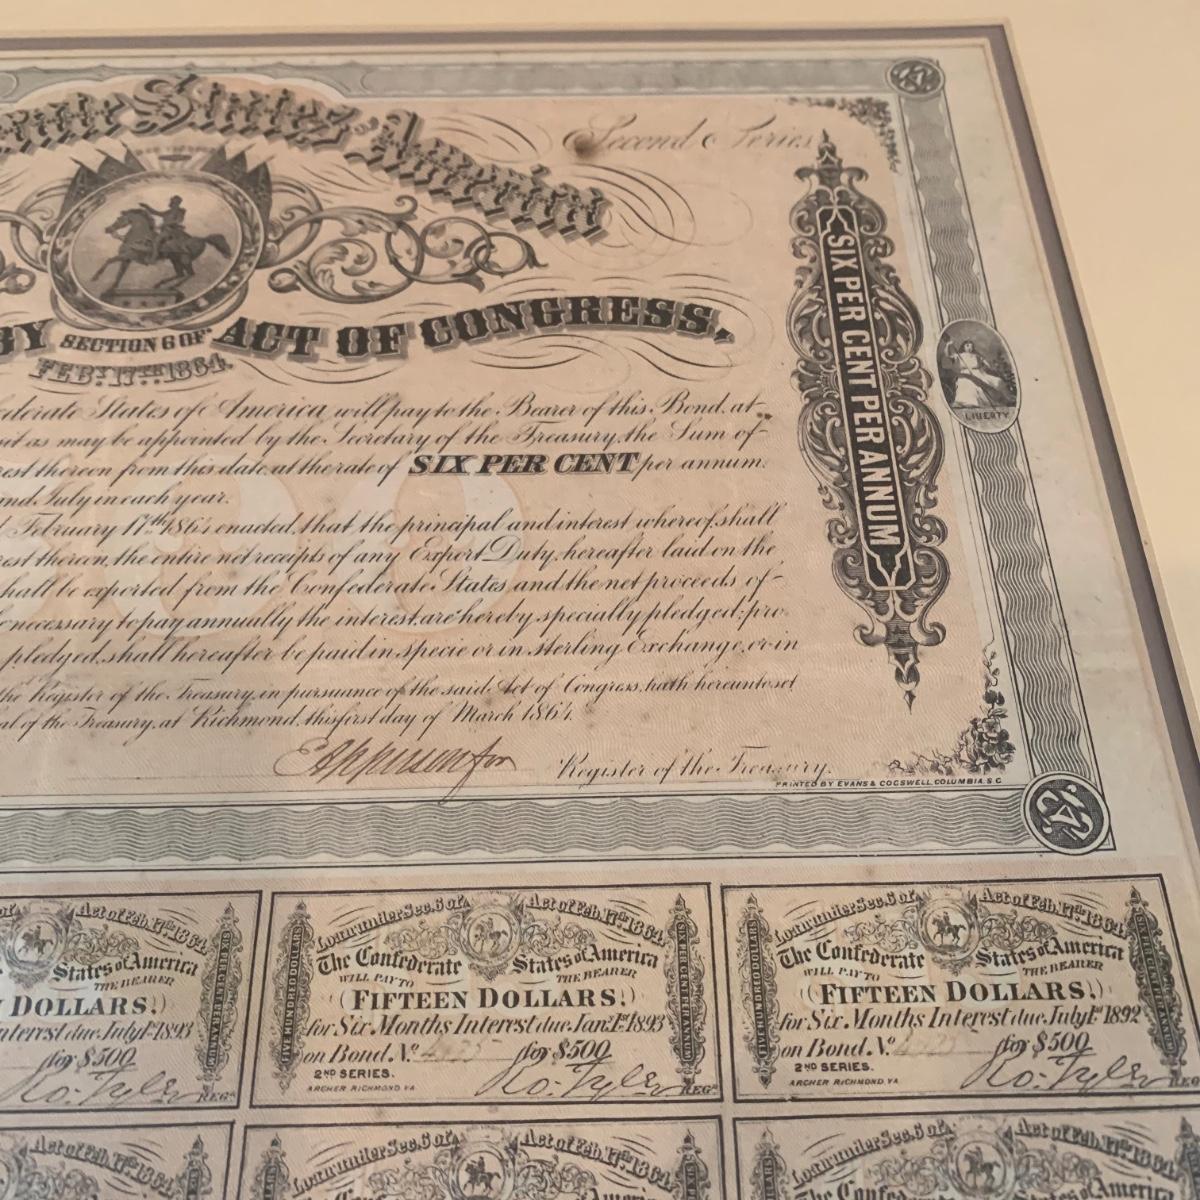 States of America
Second Series
BY SECTION 6 OF ACT OF CONGRESS,
FEBY. 17TH. 1864.
SIX PER CENT PER ANNUM
LIBERTY
States of America will pay to the Bearer of this Bond, at
as may be appointed by the Secretary of the Treasury, the Sum of
thereon from this date at the rate of SIX PER CENT per annum.
and July in each year.
February 17th 1864 enacted, that the principal and interest whereof, shall
thereon, the entire net receipts of any Export Duty, hereafter laid on the
shall be exported from the Confederate States and the net proceeds of
necessary to pay annually the interest, are hereby specially pledged: pro
pledged, shall hereafter be paid in specie or in sterling Exchange, or in
the Register of the Treasury, in pursuance of the said Act of Congress, hath hereunto set
of the Treasury, at Richmond, this first day of March 1864.
Register of the Treasury.
PRINTED BY EVANS & COGSWELL, COLUMBIA, S.C
Act of Feb. 17th 1864.
States of America
THE BEARER
DOLLARS,
interest due, July 1st 1893
for $500
Ro. Tyler REGR
SIX PER CENT PER ANNUM
Loan under Sec. 6 of Act of Feb. 17th 1864.
The Confederate States of America
WILL PAY TO THE BEARER
FIFTEEN DOLLARS,
for Six Months Interest due Jany. 1st 1893
on Bond No. for $500
2ND SERIES.
Ro. Tyler REGR
ARCHER RICHMOND, VA
FIVE HUNDRED DOLLARS
SIX PER CENT PER ANNUM
Loan under Sec. 6 of Act of Feb. 17th 1864.
The Confederate States of America
WILL PAY TO THE BEARER
FIFTEEN DOLLARS,
for Six Months Interest due, July 1st 1892
on Bond No. for $500
2ND SERIES.
Ro. Tyler REGR
ARCHER RICHMOND, VA
FIVE HUNDRED DOLLARS
SIX PER CENT PER ANNUM
Act of Feb. 17th 1864.
Loan under Sec. 6 of Act of Feb. 17th 1864.
Loan under Sec. 6 of Act of Feb. 17th 1864.